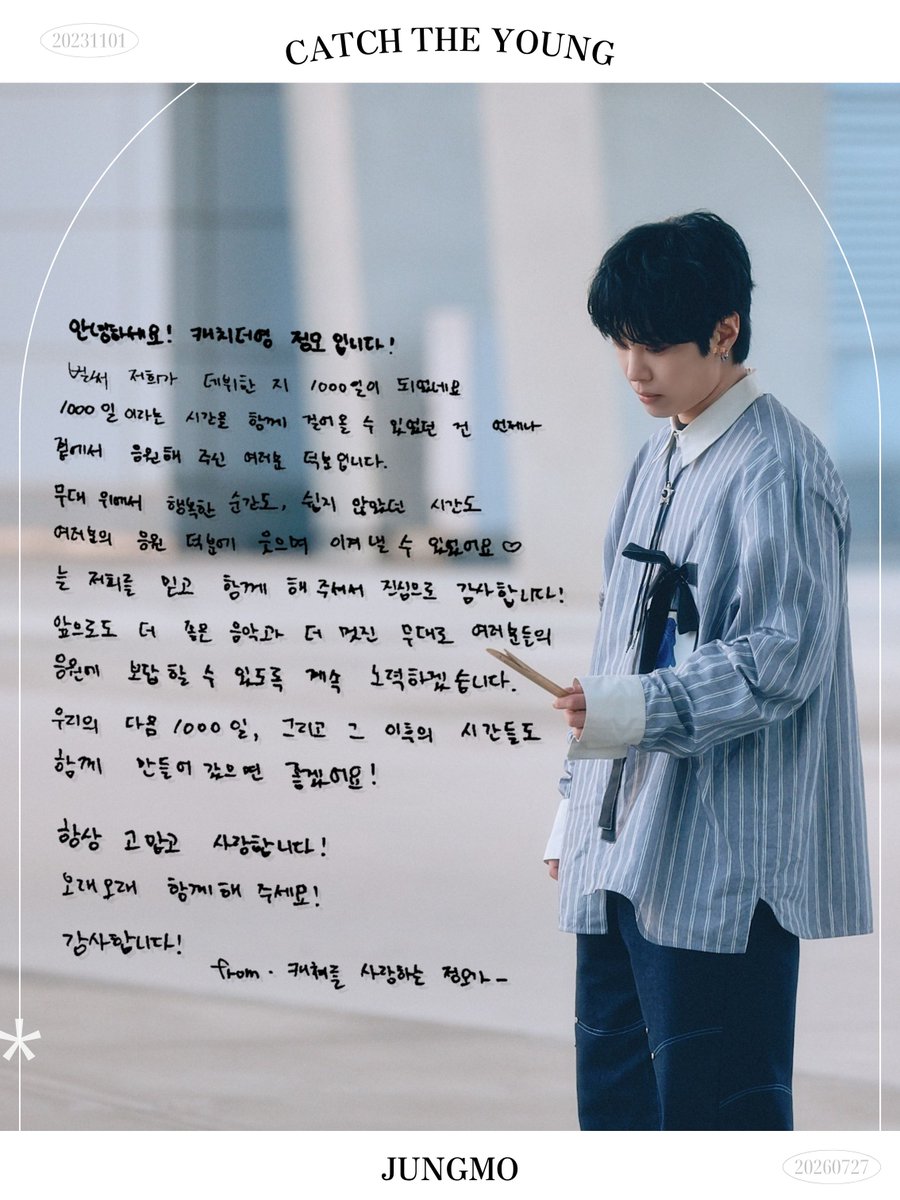 20231101
CATCH THE YOUNG
안녕하세요! 캐치더영 정모입니다!
벌써 저희가 데뷔한 지 1000일이 되었네요
1000일이라는 시간을 함께 걸어올 수 있었던 건 언제나
곁에서 응원해 주신 여러분 덕분입니다.
무대 위에서 행복한 순간도, 쉽지 않았던 시간도
여러분의 응원 덕분에 웃으며 이겨낼 수 있었어요♡
늘 저희를 믿고 함께 해주셔서 진심으로 감사합니다!
앞으로도 더 좋은 음악과 더 멋진 무대로 여러분들의
응원에 보답할 수 있도록 계속 노력하겠습니다.
우리의 다음 1000일, 그리고 그 이후의 시간들도
함께 만들어 갔으면 좋겠어요!
항상 고맙고 사랑합니다!
오래오래 함께해 주세요!
감사합니다!
from. 캐쳐를 사랑하는 정모가-
JUNGMO
20260727